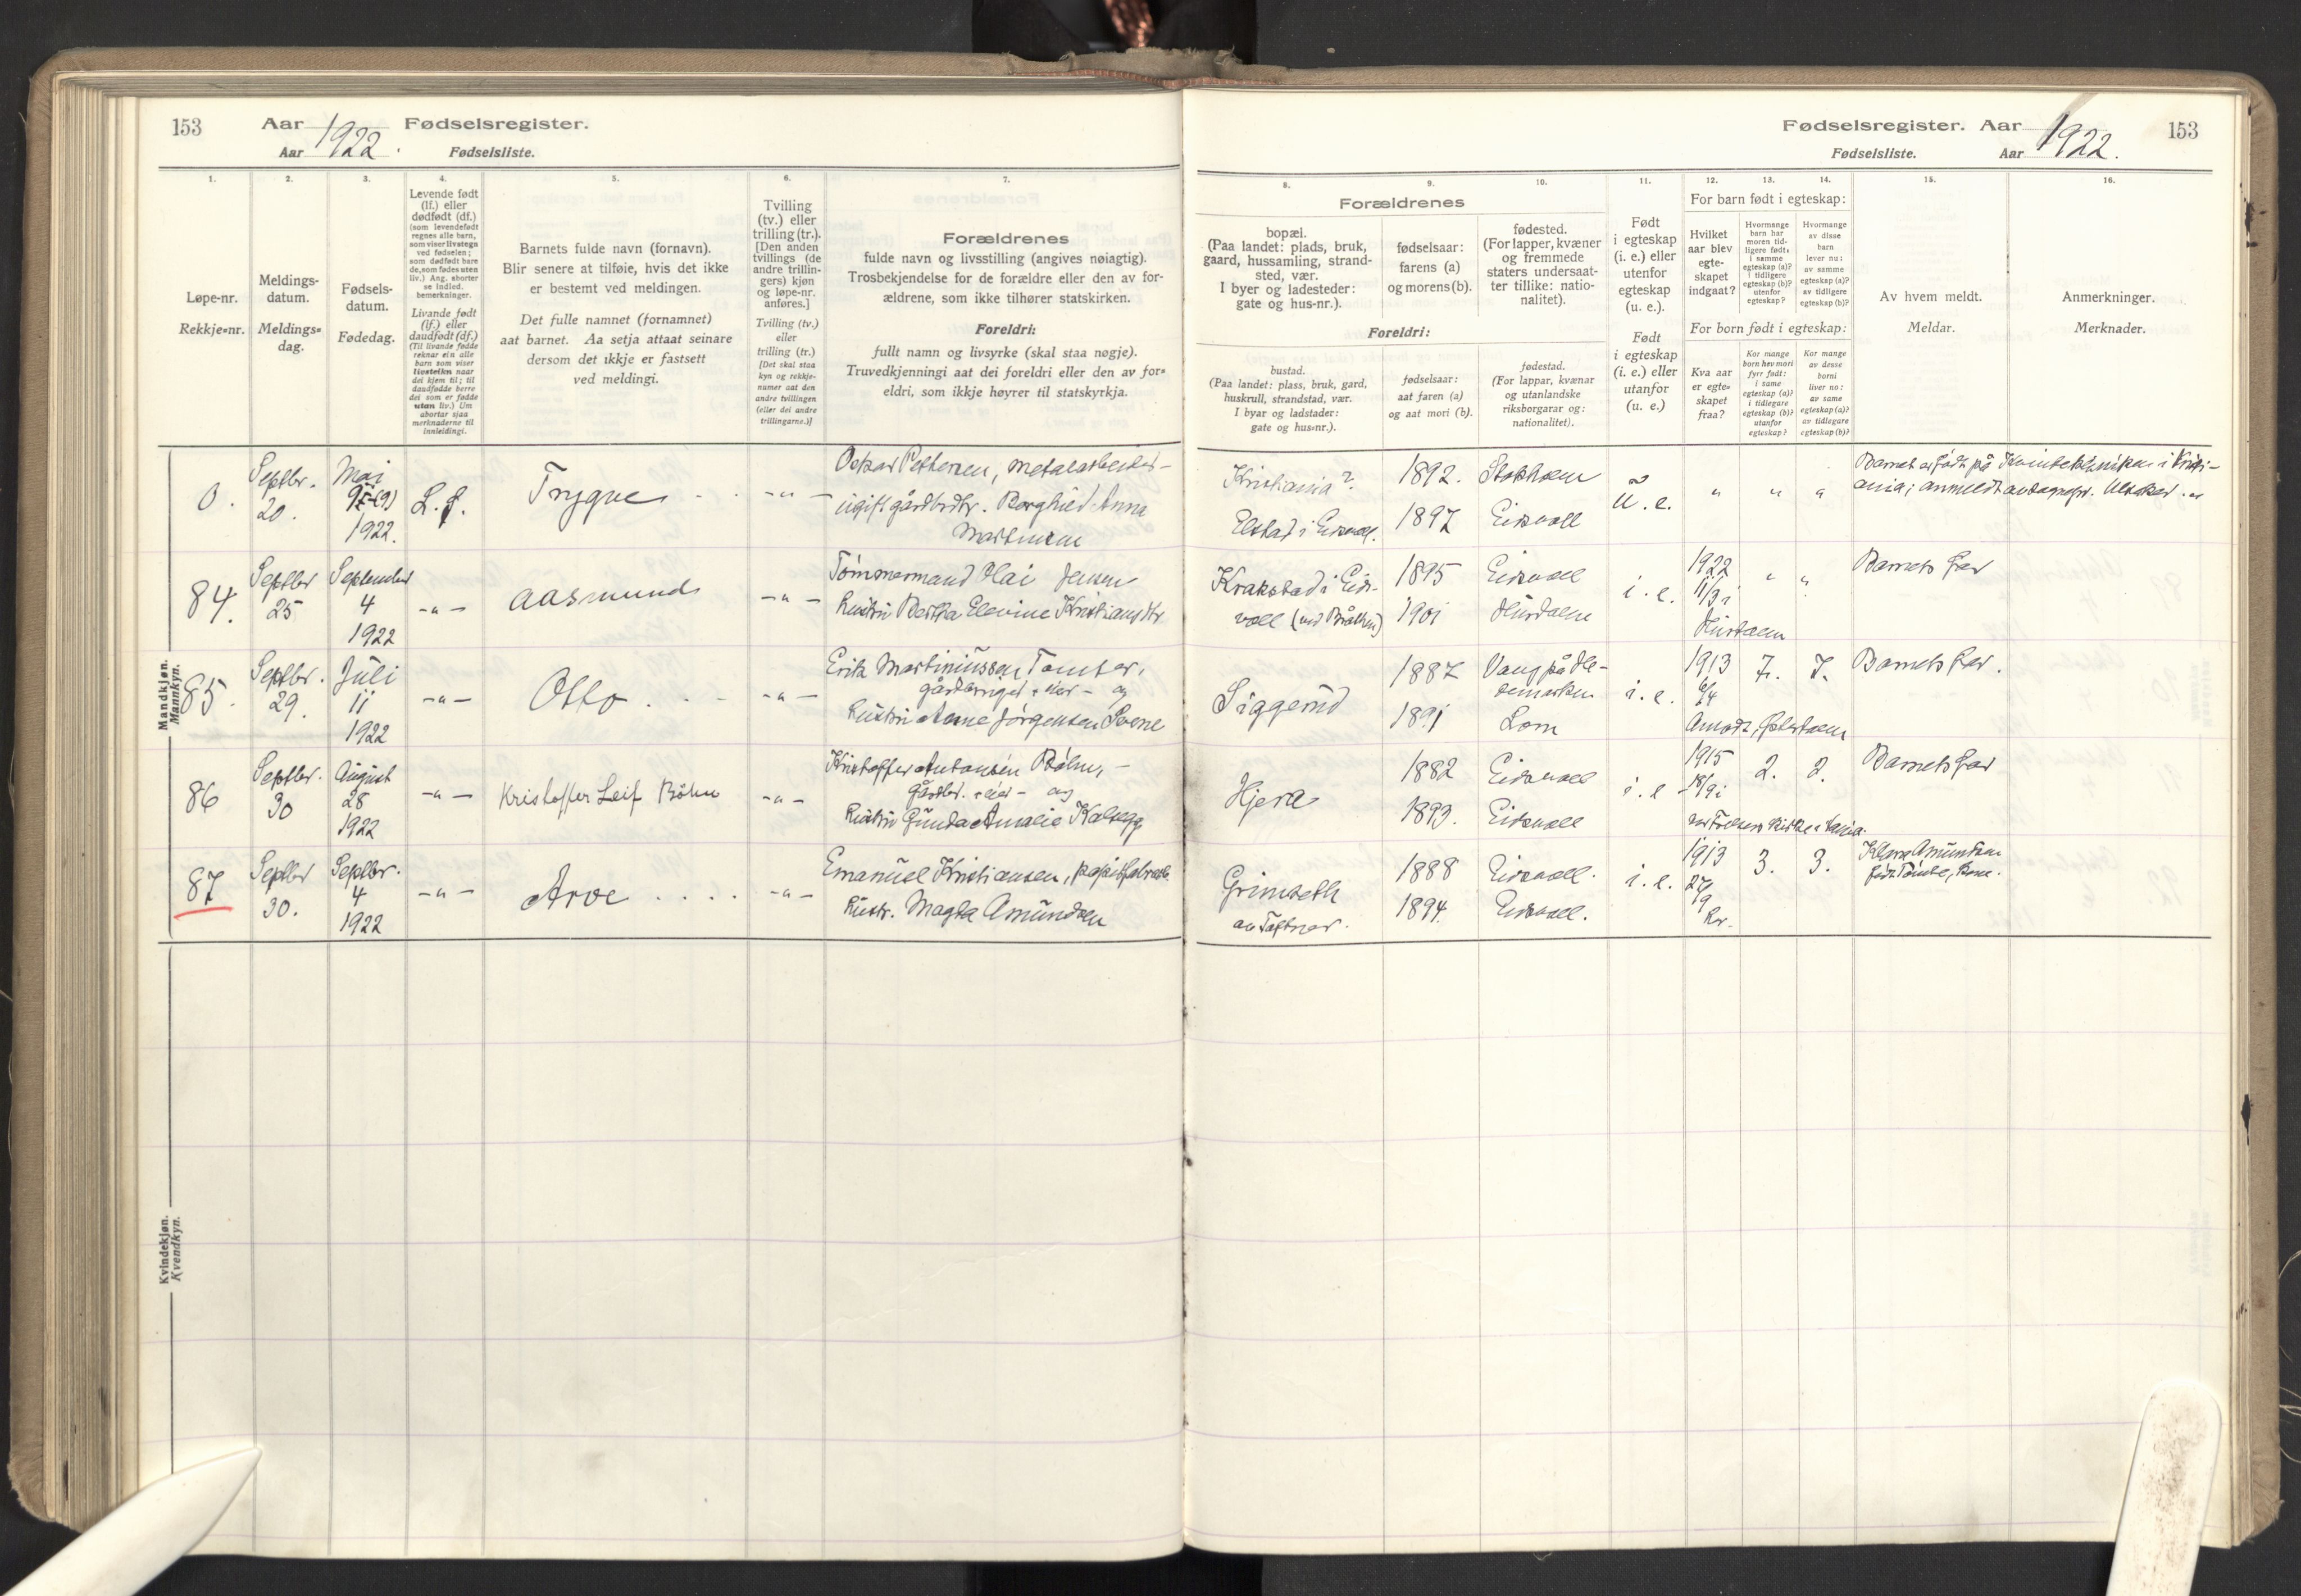 153 Aar 1922. Fødselsregister.
Aar Fødselsliste.
Fødselsregister. Aar 1922. 153
Fødselsliste. Aar
1. 2. 3. 4. 5. 6. 7.
Løpe-nr.
Rekkje=nr.
Meldings-
datum.
Meldings=
dag.
Fødsels-
datum.
Fødedag.
Levende født
(lf.) eller
dødfødt (df.)
(som levendefødt
regnes alle barn,
som viser livstegn
ved fødselen;
som dødfødt bare
de, som fødes uten
liv.) Ang. aborter
se indled.
bemerkninger.
Livande født
(lf.) eller
daudfødt (df.)
(Til livande fødde
reknar ein alle
barn som viser
livsteikn naar
dei kjem til; til
daudfødde berre
dei som er fødde
utan liv.) Um
abortar sjaa
merknaderne til
innleidingi.
Barnets fulde navn (fornavn).
Blir senere at tilføie, hvis det ikke
er bestemt ved meldingen.
Det fulle namnet (fornamnet)
aat barnet. Aa setja attaat seinare
dersom det ikkje er fastsett
ved meldingi.
Tvilling
(tv.) eller
trilling (tr.).
[Den anden
tvillings (de
andre trillin-
gers) kjøn
og løpe-nr.
anføres.]
Tvilling (tv.)
eller
trilling (tr.)
[Det skal staa
kyn og rekkje-
numer aat den
andre tvillingen
(eller dei andre
trillingarne.)]
Forældrenes
fulde navn og livsstilling (angives nøiagtig).
Trosbekjendelse for de forældre eller den av for-
ældrene, som ikke tilhører statskirken.
Foreldri:
fullt namn og livsyrke (skal staa nøgje).
Truvedkjenningi aat dei foreldri eller den av for=
eldri, som ikkje høyrer til statskyrkja.
8. 9. 10. 11. 12. 13. 14. 15. 16.
Forældrenes
bopæl.
(Paa landet: plads, bruk,
gaard, hussamling, strand-
sted, vær.
I byer og ladesteder:
gate og hus-nr.).
fødselsaar:
farens (a)
og morens (b).
fødested.
(For lapper, kvæner
og fremmede
staters undersaat-
ter tillike: natio-
nalitet).
Foreldri:
bustad.
(Paa landet: plass, bruk, gard,
huskrull, strandstad, vær.
I byar og ladstader:
gate og hus=nr.).
fødselsaar:
aat faren (a)
og aat mori (b).
fødestad.
(For lappar, kvænar
og utanlandske
riksborgarar og:
nationalitet).
Født
i egteskap
(i. e.) eller
utenfor
egteskap
(u. e.).
Født
i egteskap
(i. e.) eller
utanfor
(u. e.)
For barn født i egteskap:
Hvilket
aar blev
egte-
skapet
indgaat?
Hvormange
barn har
moren tid-
ligere født:
i samme
egteskap (a)?
i tidligere
egteskap (b)?
utenfor
egteskap?
Hvormange
av disse
barn
lever nu:
av samme
egteskap (a)?
av tidligere
egteskap (b)?
For born født i egteskap:
Kva aar
er egte=
skapet
fraa?
Kor mange
born hev mori
fyrr født:
i same
egteskap (a)?
i tidlegare
egteskap (b)?
utanfor
egteskap?
Kor mange
av desse
borni
liver no:
av same
egteskap (a)?
av tidlegare
egteskap (b)?
Av hvem meldt.
Meldar.
Anmerkninger.
Merknader.
Mandkjøn.
Mannkyn.
0. Septbr. 20. Mai 1922. L. f. Trygve -"-
Oskar Pettersen, metalarbeider -
ugift gårdbrdtr. Borghild Anna
Martinsen
Kristiania? 1892. Stokholm u. e. " " "
Elstad i Eidsvoll. 1897 Eidsvoll
Barnet er født på Kvindeklinikken i Kristi-
ania; anmeldt av sognepr.
84. Septbr 25 September 4 1922 -"- Aasmund -"-
Tømmermand Jensen
hustru Bertha Elevine
Krakstad i Eids-
voll 1895 Eidsvoll i. e. 1922 11/3 i " "
1901 Hurdalen Hurdalen
Barnets far
85. Septbr. 29. Juli 11 1922 -"- Otto -"-
Erik Martiniussen Tomter,
gårdbruger + eier - og
hustru Anne Jørgensen
Siggerud 1887 Vang på He-
demarken i. e. 1913 6/4 7. 7.
1891 Lom
Barnets far.
86 Septbr. 30 August 28 1922 -"- Kristoffer Leif Bøhn -"-
Kristoffer Antonsen Bøhn, -
gårdbr. + eier - og
hustru Gunda Amalie
Hjera 1882 Eidsvoll i. e 1915 18/9 i 2. 2.
1893. Eidsvoll
Barnets far
87 Septbr 30. Septbr. 4 1922 -"- Arve -"-
Emanuel Kristiansen,
hustr. Magda Amundsen
Grimseth 1888 Eidsvoll. i. e. 1913 27/9 3. 3.
av Toftner. 1894. Eidsvoll.
Klara Amundsen
Kvindekjøn.
Kvendkyn.